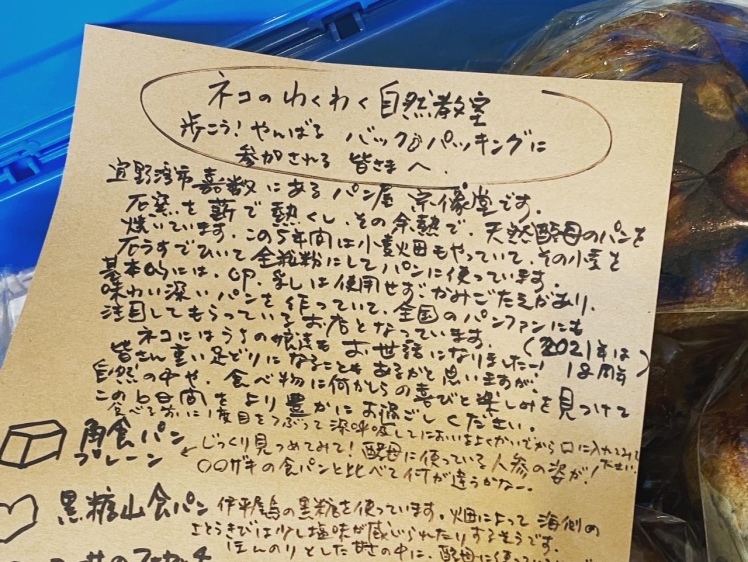 ネコのわくわく自然教室
歩こう！やんばる バックパッキングに
参加される 皆さまへ.
宜野湾市嘉数にあるパン屋 宗像堂です.
石窯を薪で熱くし、その余熱で、天然酵母のパンを
焼いています。この5年間は小麦畑もやっていて、その小麦を
石うすでひいて全粒粉にしてパンに使っています.
基本的には、卵、乳しは使用せずかみごたえがあり、
味わい深いパンを作っていて、全国のパンファンにも
注目してもらっているお店となっています. (2021年は
ネコにはうちの娘達もお世話になりました〜! 18周年)
皆さん重い足どりになることもあると思いますが、
自然の中や、食べ物に何かしらの喜びと楽しみを見つけて
この6日間をより豊かにお過ごしください.
食べるおに1度目をつぶって深呼吸してにおいをよくかいでから口に入れてみてください.
角食パン
プレーン
じっくり見つめてみて！酵母に使っている人参の姿が！
〇〇ザキの食パンと比べて何が違うかなー.
黒糖山食パン 伊平屋島の黒糖を使っています. 畑によって海側の
さとうきびは少し塩味が感じられたりするそうです.
ほんのりとした甘さの中に、酵母に使って